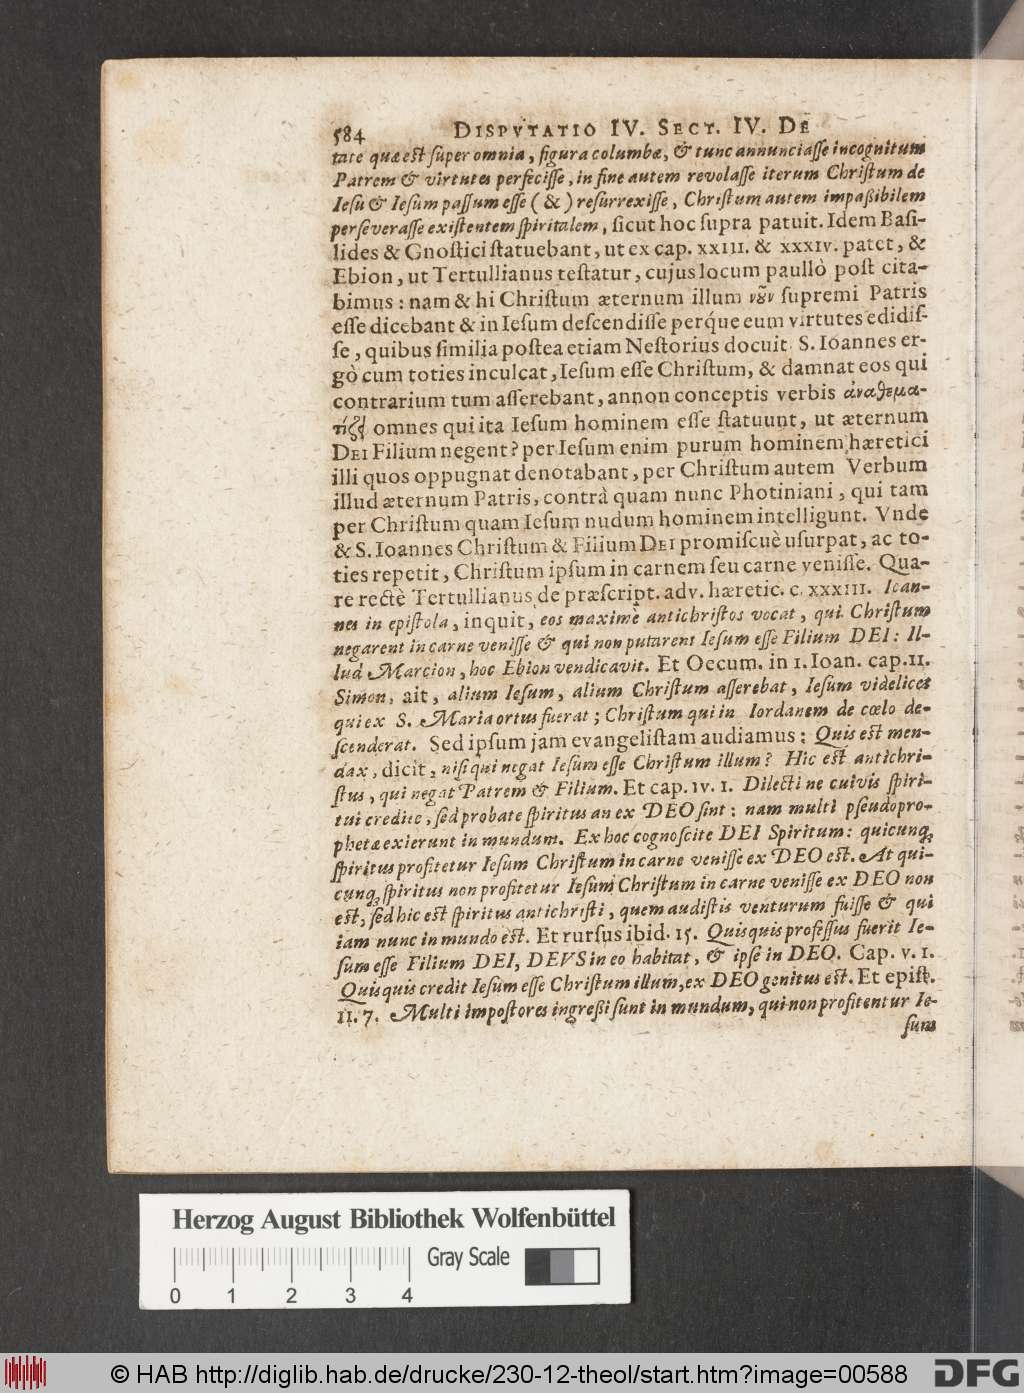 584 DISPVTATIO IV. SECT. IV. DE
tate quæ est super omnia, figura columbæ, & tunc annunciasse incognitum
Patrem & virtutes perfecisse, in fine autem revolasse iterum Christum de
Iesu & Iesum passum esse ( & ) resurrexisse, Christum autem impaßibilem
perseverasse existentem spiritalem, sicut hoc supra patuit. Idem Basi-
lides & Gnostici statuebant, ut ex cap. XXIII. & XXXIV. patet, &
Ebion, ut Tertullianus testatur, cujus locum paullò post cita-
bimus: nam & hi Christum æternum illum νȣ͂ν supremi Patris
esse dicebant & in Iesum descendisse perq́ue eum virtutes edidis-
se, quibus similia postea etiam Nestorius docuit. S. Ioannes er-
gò cum toties inculcat, Iesum esse Christum, & damnat eos qui
contrarium tum asserebant, annon conceptis verbis ἀναθεμα-
τίζει omnes qui ita Iesum hominem esse statuunt, ut æternum
DEI Filium negent? per Iesum enim purum hominem hæretici
illi quos oppugnat denotabant, per Christum autem Verbum
illud æternum Patris, contrà quam nunc Photiniani, qui tam
per Christum quam Iesum nudum hominem intelligunt. Vnde
& S. Ioannes Christum & Filium DEI promiscuè usurpat, ac to-
ties repetit, Christum ipsum in carnem seu carne venisse. Qua-
re rectè Tertullianus de præscript. adv. hæretic. c. XXXIII. Ioan-
nes in epistola, inquit, eos maximè antichristos vocat, qui Christum
negarent in carne venisse & qui non putarent Iesum esse Filium DEI: Il-
lud Marcion, hoc Ebion vendicavit. Et Oecum. in 1. Ioan. cap. II.
Simon, ait, alium Iesum, alium Christum asserebat, Iesum videlicet
qui ex S. Maria ortus fuerat; Christum qui in Iordanem de cœlo de-
scenderat. Sed ipsum jam evangelistam audiamus: Quis est men-
dax, dicit, nisi qui negat Iesum esse Christum illum? Hic est antichri-
stus, qui negat Patrem & Filium. Et cap. IV. 1. Dilecti ne cuivis spiri-
tui credite, sed probate spiritus an ex DEO sint: nam multi pseudopro-
phetæ exierunt in mundum. Ex hoc cognoscite DEI Spiritum: quicunq;
spiritus profitetur Iesum Christum in carne venisse ex DEO est. At qui-
cunq; spiritus non profitetur Iesum Christum in carne venisse ex DEO non
est, sed hic est spiritus antichristi, quem audistis venturum fuisse & qui
iam nunc in mundo est. Et rursus ibid. 15. Quisquis professus fuerit Ie-
sum esse Filium DEI, DEVS in eo habitat, & ipse in DEO. Cap. V. 1.
Quisquis credit Iesum esse Christum illum, ex DEO genitus est. Et epist.
II. 7. Multi impostores ingreßi sunt in mundum, qui non profitentur Ie-
sum
Herzog August Bibliothek Wolfenbüttel
Gray Scale
0 1 2 3 4
© HAB http://diglib.hab.de/drucke/230-12-theol/start.htm?image=00588
DFG